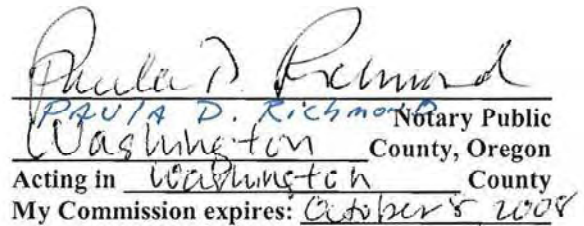 Paula D. Richmond
PAULA D. Richmond Notary Public
Washington County, Oregon
Acting in Washington County
My Commission expires: October 8 2008